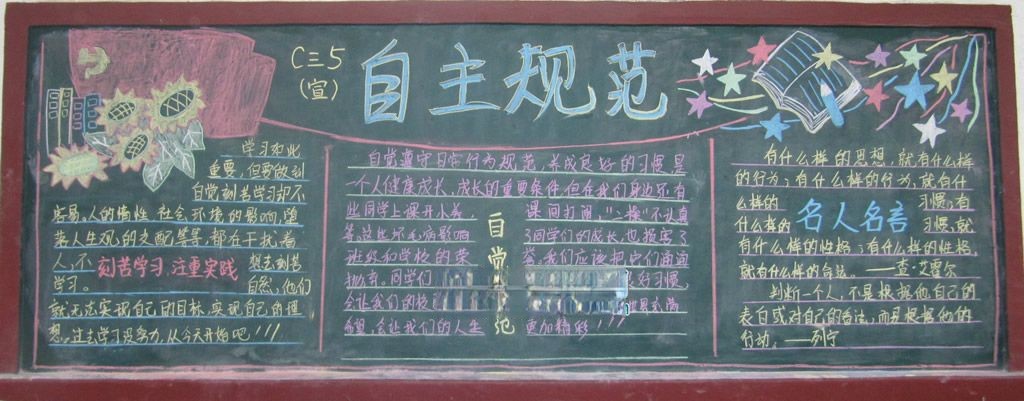 C三5
(宣)
自主规范
学习如此
重要，但要做到
自觉刻苦学习却不
容易，人的惰性 社会环境的影响，堕
落人生观的支配等等，都在干扰着
人，不 刻苦学习，注重实践 想去刻苦
学习。 自然，他们
就无法实现自己的目标，实现自己的理
想。过去学习没努力，从今天开始吧！！！
自觉遵守日常行为规范，养成良好的习惯，是
一个人健康成长、成长的重要条件，但在我们身边还有
些同学上课开小差， 课间打闹，"操"不认真
等，这些坏毛病影响 了同学们的成长，也损害了
班级和学校的荣 誉，我们应该把它们通通
抛弃。同学们 好习惯
会让我们的校 世界充满
希望，会让我们的人生 更加精彩！！！
自觉 范
有什么样的思想，就有什么样
的行为；有什么样的行为，就有什
么样的 习惯；有
什么样的 名人名言 习惯，就
有什么样的性格；有什么样的性格，
就有什么样的命运。——查·艾霍尔
判断一个人，不是根据他自己的
表白或对自己的看法，而是根据他的
行动。——列宁